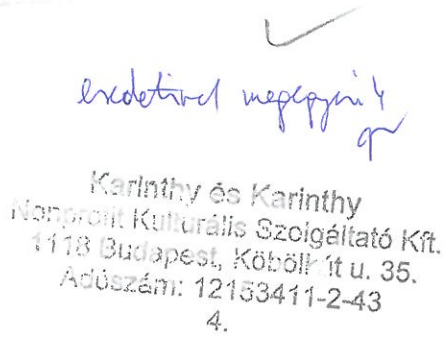 eredetivel megegyező
Karinthy és Karinthy
Nonprofit Kulturális Szolgáltató Kft.
1118 Budapest, Köbölkút u. 35.
Adószám: 12153411-2-43
4.